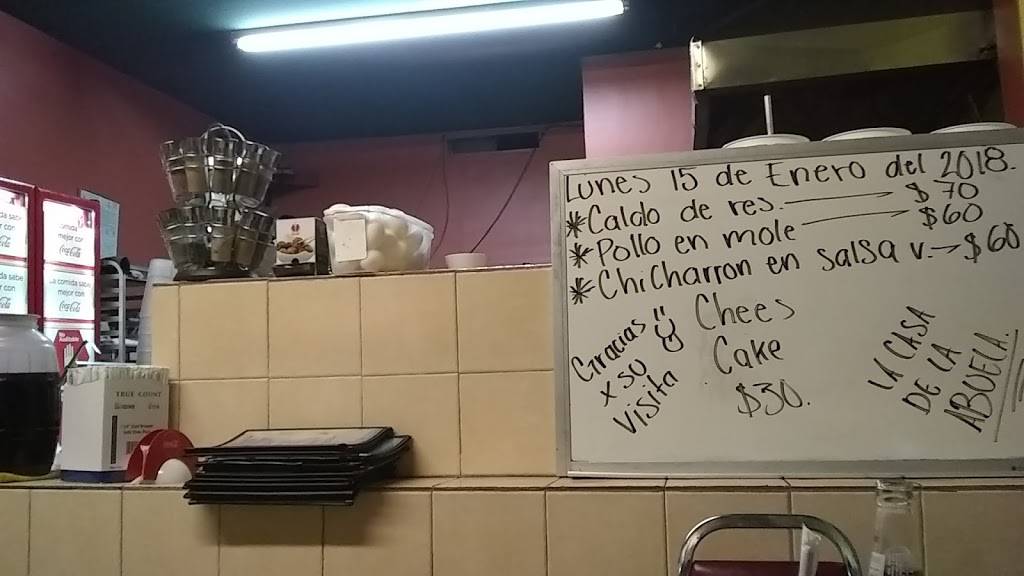 Lunes 15 de Enero del 2018.
*Caldo de res. $70
*Pollo en mole $60
*Chicharron en salsa v. $60
Chees
Cake
$30.
Gracias
x su
visita
LA CASA
DE LA
ABUELA.
TRUE COUNT
mejor con
Coca-Cola
La comida sabe
mejor con
Coca-Cola